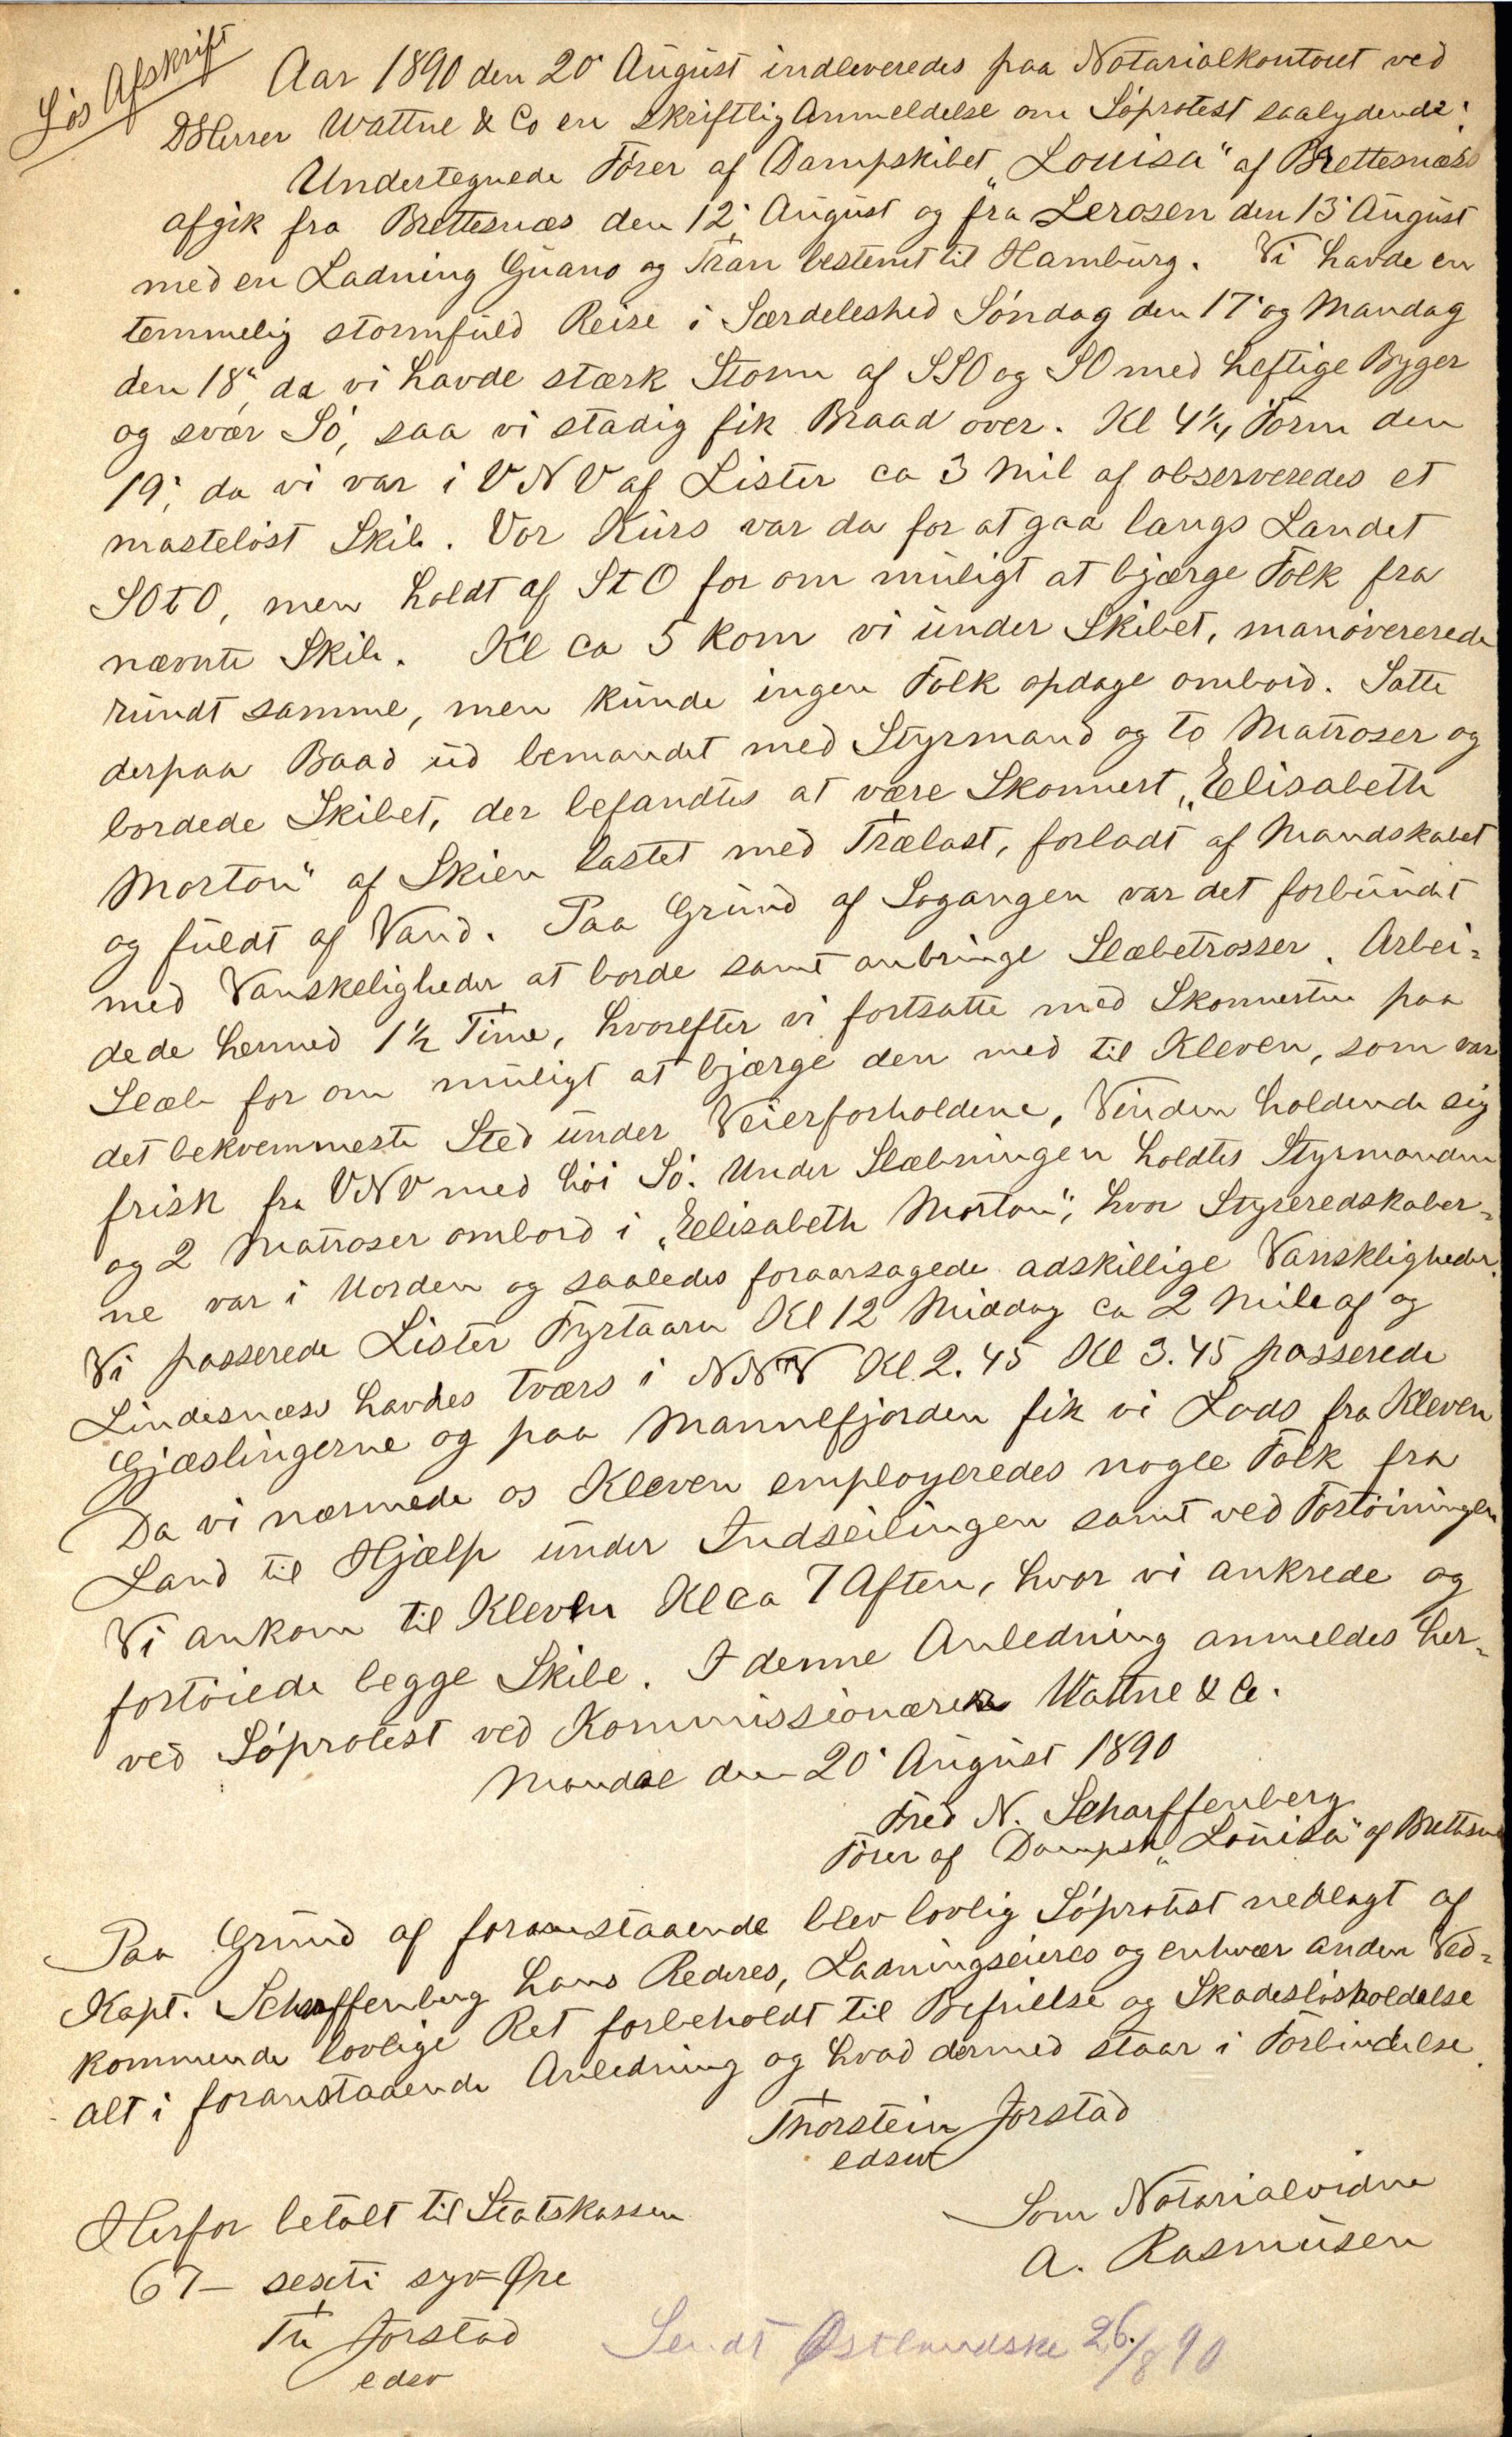 Løs Afskrift
Aar 1890 den 20' August indleveredes paa Notarialkontoret ved
DHerrer Wattne & Co en skriftlig Anmeldelse om Søprotest saalydende:
Undertegnede Fører af Dampskibet "Louisa" af Brettesnæs
afgik fra Brettesnæs den 12' August og fra Lerosen den 13' August
med en Ladning Guano og Tran bestemt til Hamburg. Vi havde en
temmelig stormfuld Reise i Særdeleshed Søndag den 17' og Mandag
den 18', da vi havde stærk Storm af SSO og SO med heftige Byger
og svær Sø, saa vi stadig fik Braad over. Kl 4½ Form den
19', da vi var i VNV af Lister ca 3 Mil af observeredes et
masteløst Skib. Vor Kurs var da for at gaa langs Landet
SOtO, men holdt af StO for om muligt at bjærge Folk fra
nævnte Skib. Kl ca 5 kom vi under Skibet, manøvererede
rundt samme, men kunde ingen Folk opdage ombord. Satte
derpaa Baad ud bemandet med Styrmand og to Matroser og
bordede Skibet, der befandtes at være Skonnert "Elisabeth
Morton" af Skien lastet med Trælast, forladt af Mandskabet
og fuldt af Vand. Paa Grund af Søgangen var det forbundet
med Vanskeligheder at borde samt anbringe Slæbetrosser. Arbei-
dede hermed 1½ Time, hvorefter vi fortsatte med Skonnerten paa
Slæb for om muligt at bjærge den med til Kleven, som var
det bekvemmeste Sted under Veierforholdene, Vinden holdende sig
frisk fra VNV med høi Sø. Under Slæbningen holdtes Styrmanden
og 2 Matroser ombord i "Elisabeth Morton", hvor Styreredskaber-
ne var i Uorden og saaledes foraarsagede adskillige Vanskligheder.
Vi passerede Lister Fyrtaarn Kl 12 Middag ca 2 Mile af og
Lindesnæs havdes tværs i NNV Kl 2.45 Kl 3.45 passerede
Gjæslingerne og paa Mannefjorden fik vi Lods fra Kleven
Da vi nærmede os Kleven employeredes nogle Folk fra
Land til Hjælp under Indseilingen samt ved Fortøiningen
Vi ankom til Kleven Kl ca 7 Aften, hvor vi ankrede og
fortøiede begge Skibe. I denne Anledning anmeldes her-
ved Søprotest ved Kommissionærer Wattne & Co.
Mandal den 20' August 1890
Fred N. Scharffenberg
Fører af Dampsk "Louisa" af Brettesnæs
Paa Grund af foranstaaende blev lovlig Søprotest nedlagt af
Kapt. Scharffenberg hans Rederes, Ladningseieres og enhvær anden Ved-
kommende lovlige Ret forbeholdt til Befrielse og Skadesløsholdelse
alt i foranstaaende Anledning og hvad dermed staar i Forbindelse.
Thorstein Jorstad
edsv
Som Notarialvidne
A. Rasmusen
Herfor betalt til Statskassen
67 – sexti syv Øre
Th Jorstad
edsv
Sendt Østlandske 26/8 90